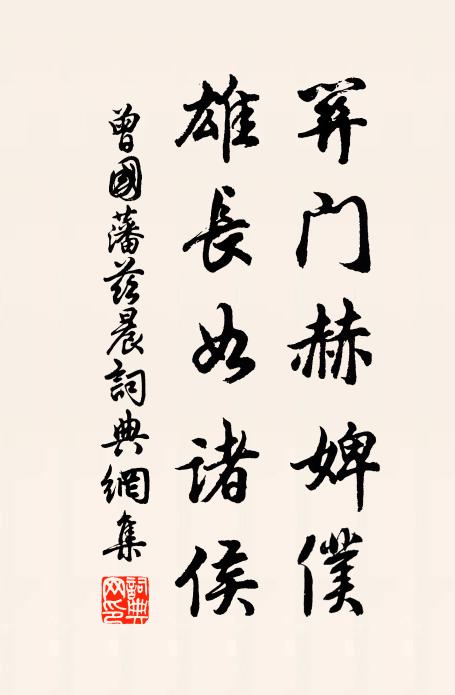 門赫婢僕
雄長如諸侯
曾國藩茲晨詞典網集
詞典網印